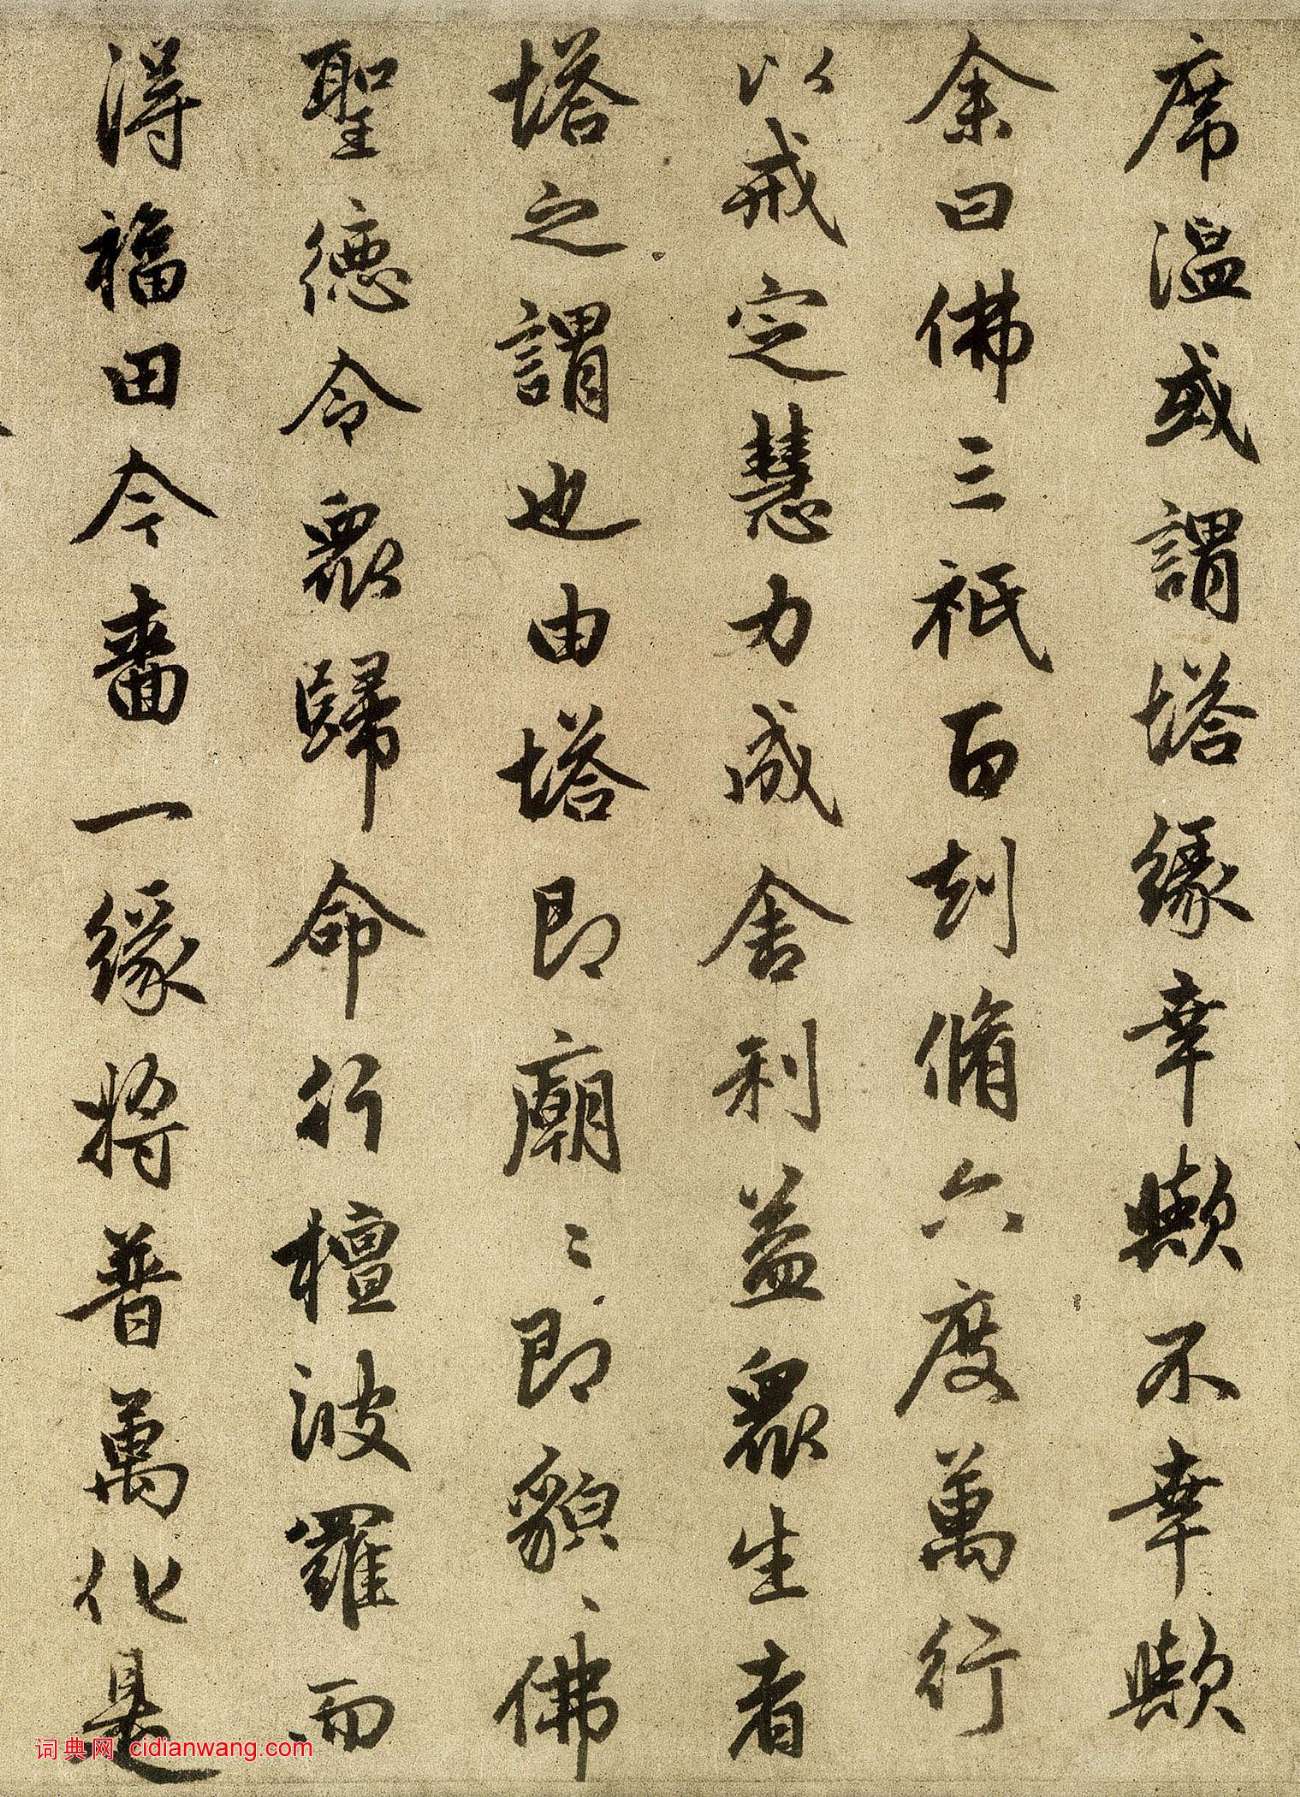 席溫或謂塔緣幸歟不幸歟
余曰佛三祇百刼脩六度萬行
以戒定慧力成舍利益眾生者
塔之謂也由塔即廟〻即貌〻佛
聖德令眾歸命行檀波羅而
得福田今嗇一緣將普萬化是
词典网 cidianwang.com